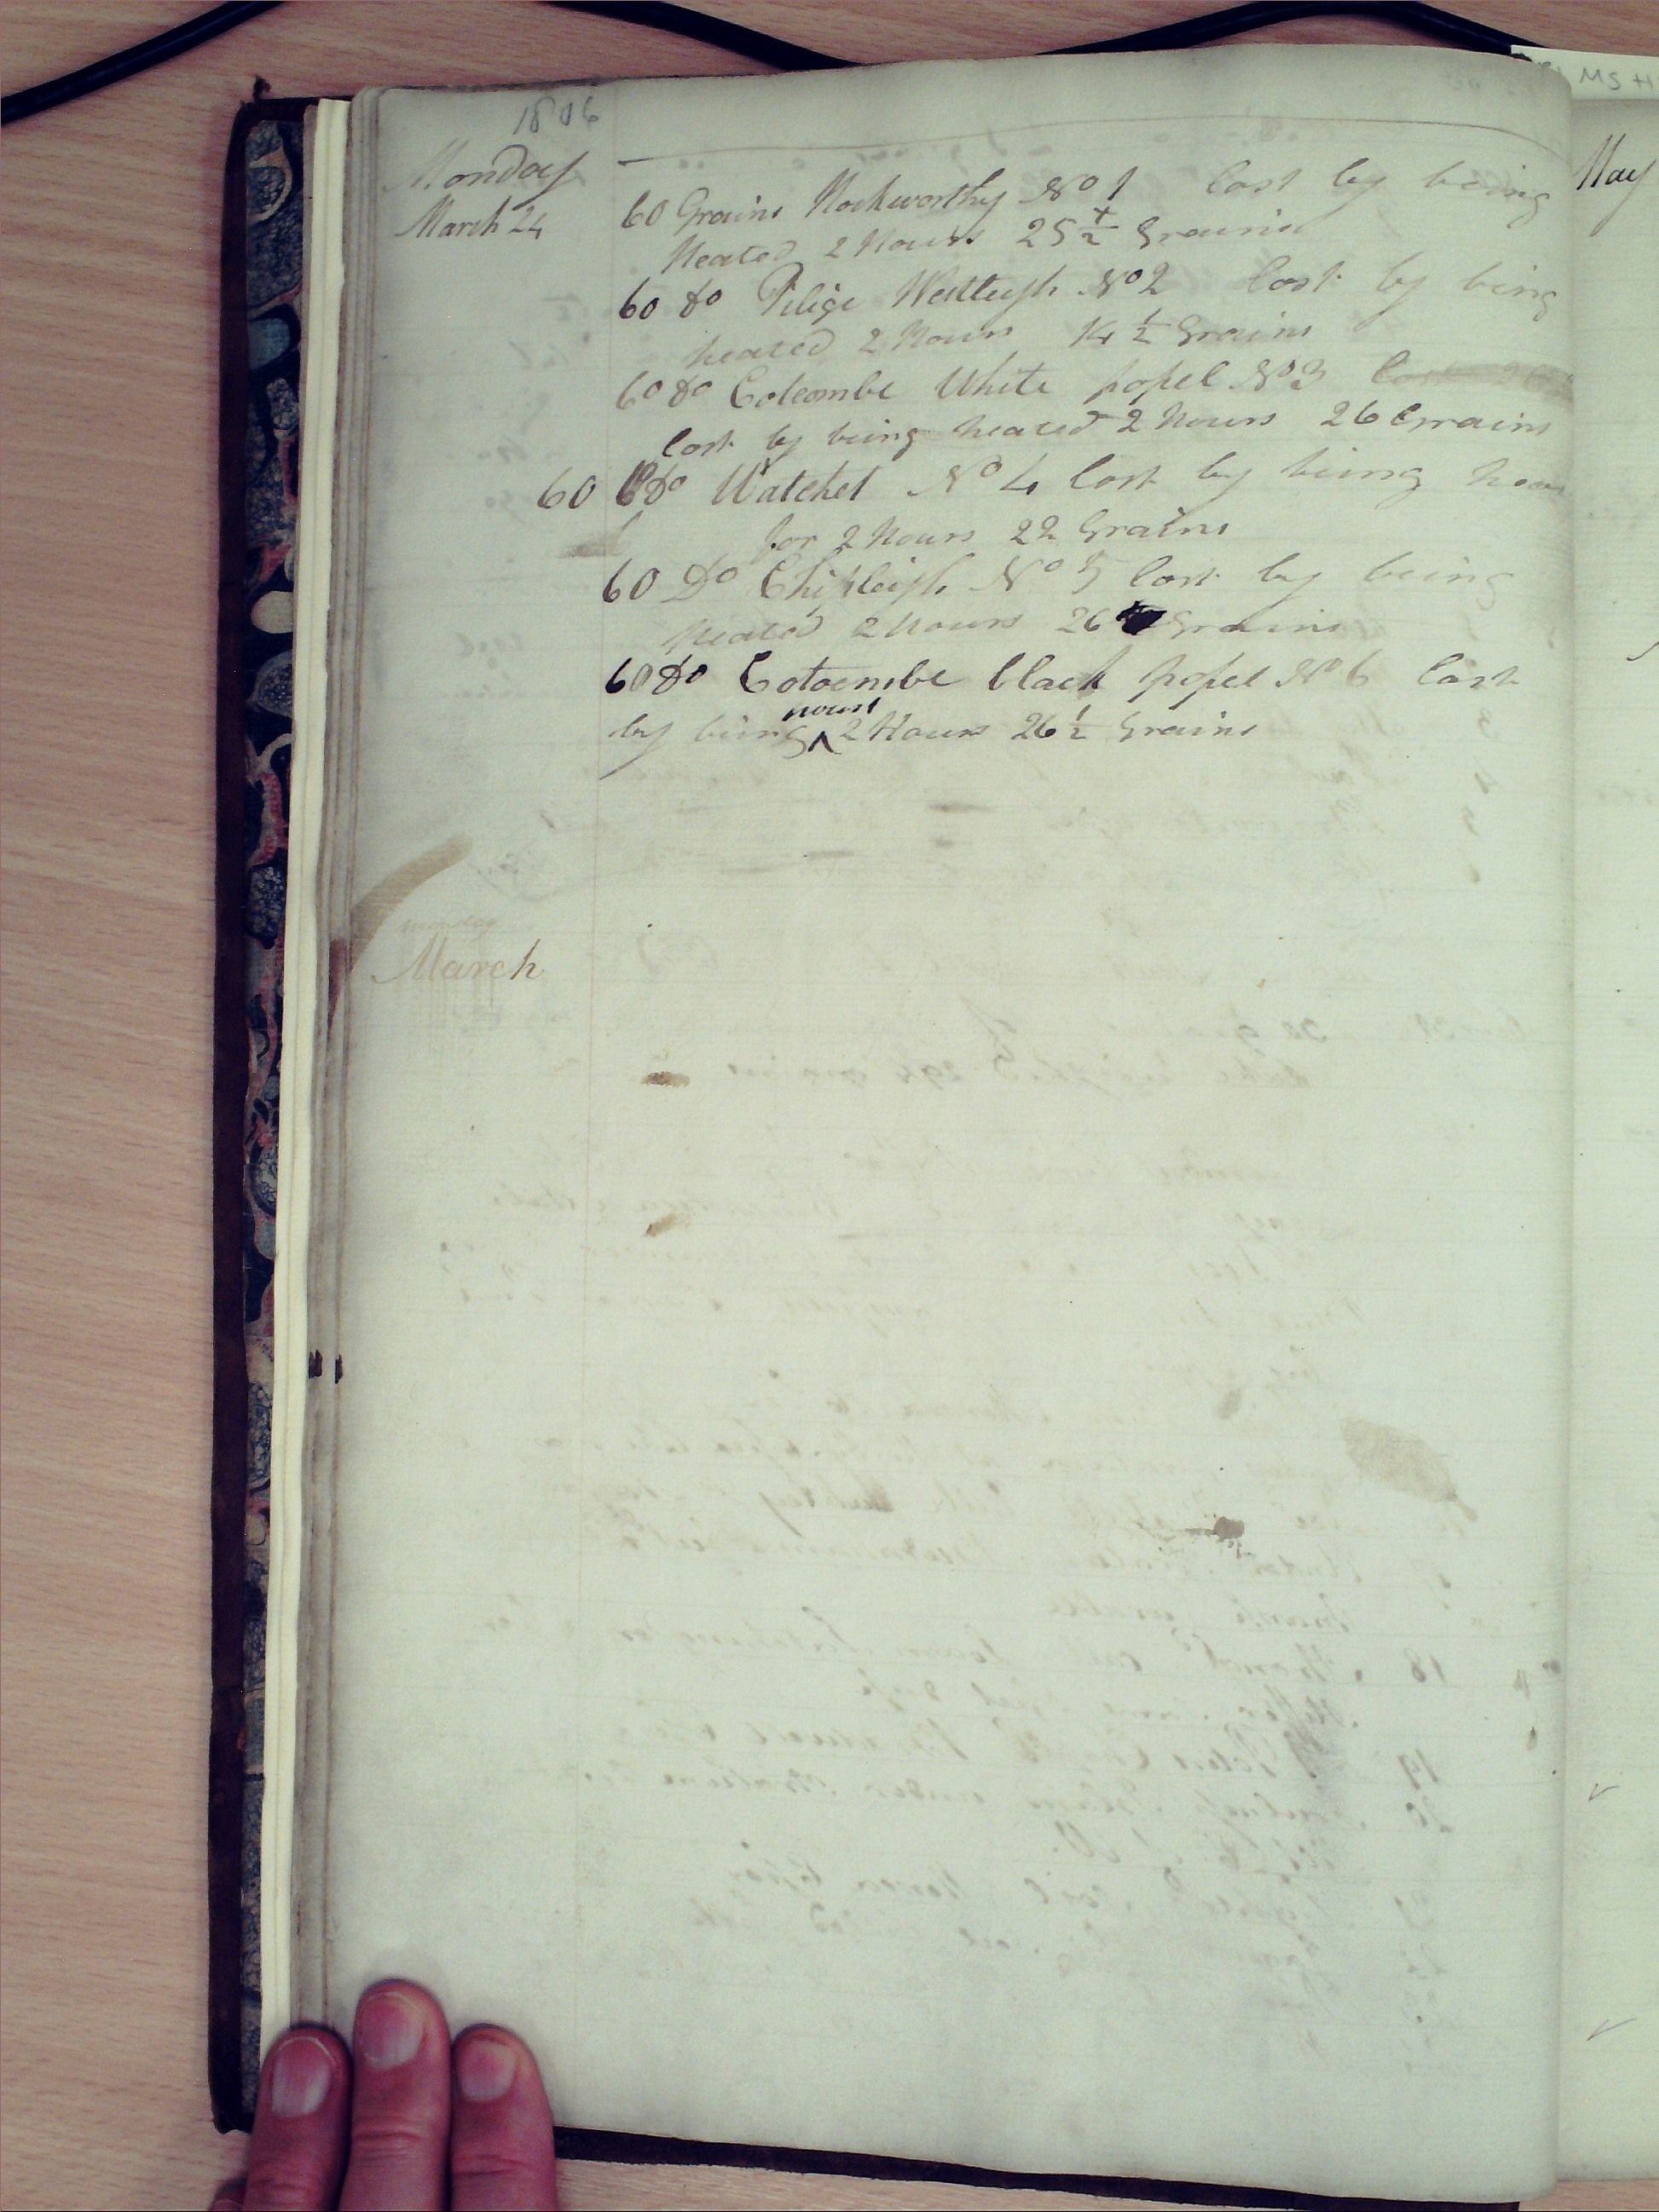 1806
Monday
March 24
60 Grains Hockworthy No 1 lost by being
heated 2 Hours 25 1/2 Grains
60 do Westleigh No 2 lost by being
heated 2 Hours 14 1/2 Grains
60 do Cotcombe White popel No 3 lost 26
lost by being heated 2 Hours 26 Grains
60 do Watchet No 4 lost by being hea
for 2 Hours 22 Grains
60 Do Chipleigh No 5 lost by being
heated 2 Hours 26 Grains
60 do Cotcombe black popel No 6 lost
by being 2 Hours 26 1/2 Grains
monday
March
May
MS H